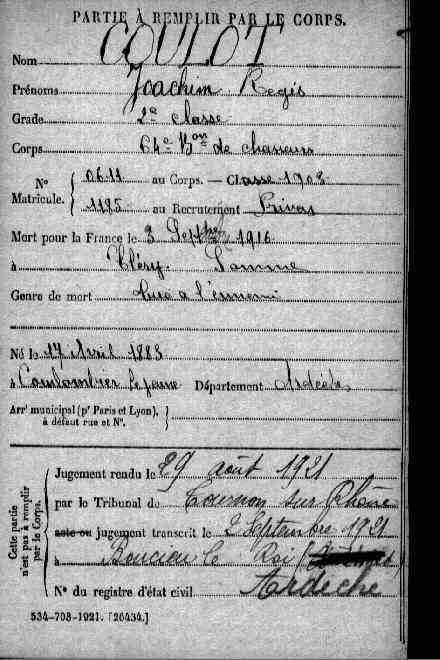 PARTIE À REMPLIR PAR LE CORPS.
Nom COULOT
Prénoms Joachim Regis
Grade 2e classe
Corps 64e Bon de chasseurs
No Matricule. 0611 au Corps. — Classe 1903
1185 au Recrutement Privas
Mort pour la France le 3 Septbre 1916
à Cléry Somme
Genre de mort tué à l'ennemi
Né le 17 Avril 1883
à Coulombier le jeune Département Ardèche
Arrt municipal (pr Paris et Lyon),
à défaut rue et No.
Cette partie n'est pas à remplir par le Corps.
Jugement rendu le 29 août 1921
par le Tribunal de Tournon sur Rhône
acte ou jugement transcrit le 2 Septembre 1921
à Boucieu le Roi
Ardèche
No du registre d'état civil
534-708-1921. [26434.]